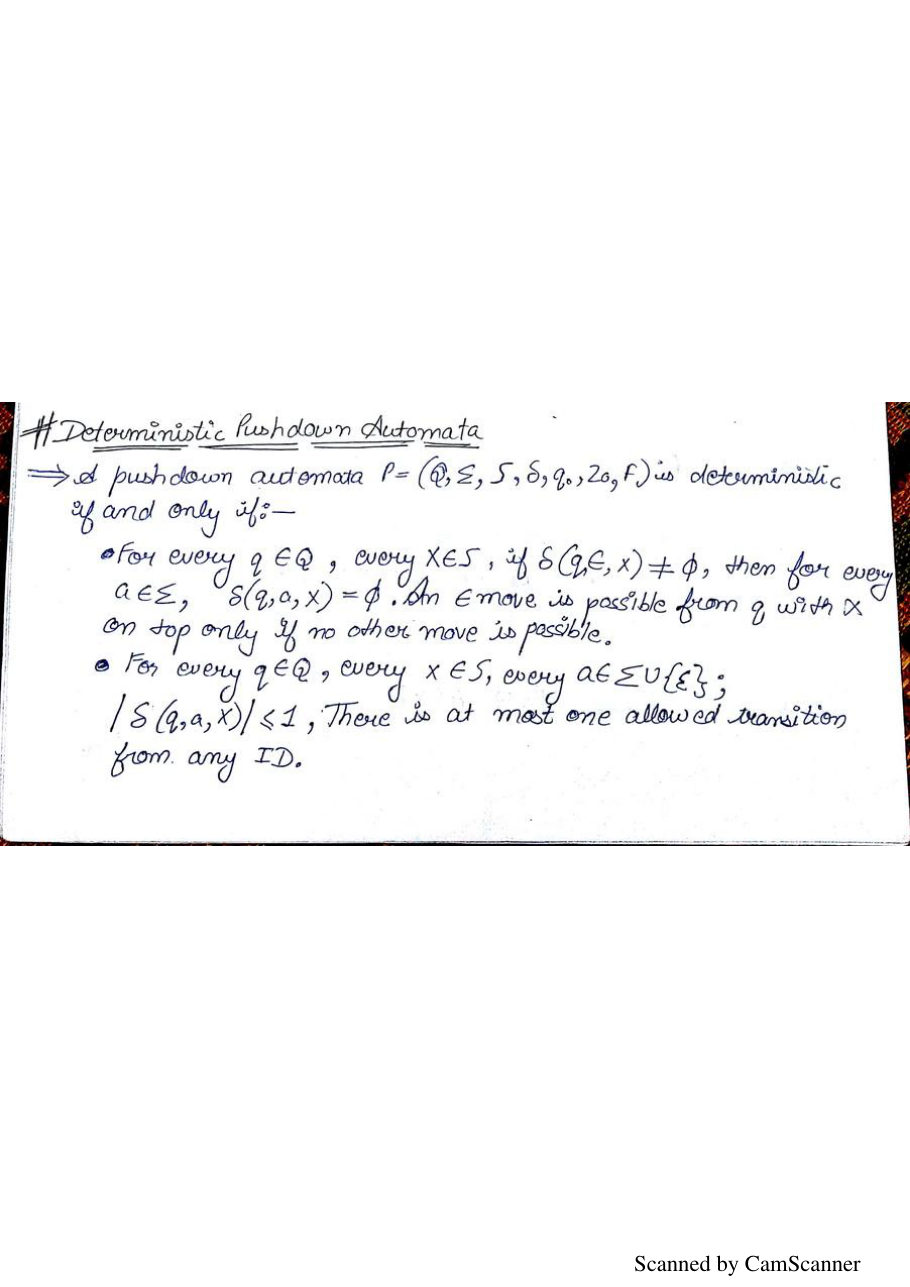 # Deterministic Pushdown Automata
⇒ A pushdown automata P = (Q, Σ, S, δ, q₀, z₀, F) is deterministic
if and only if:—
• For every q ∈ Q, every X ∈ S, if δ(q, ∈, x) ≠ ϕ, then for every
a ∈ Σ, δ(q, a, x) = ϕ. An ∈ move is possible from q with x
on top only if no other move is possible.
• For every q ∈ Q, every x ∈ S, every a ∈ Σ ∪ {ε};
|δ(q, a, x)| ≤ 1, There is at most one allowed transition
from any ID.
Scanned by CamScanner